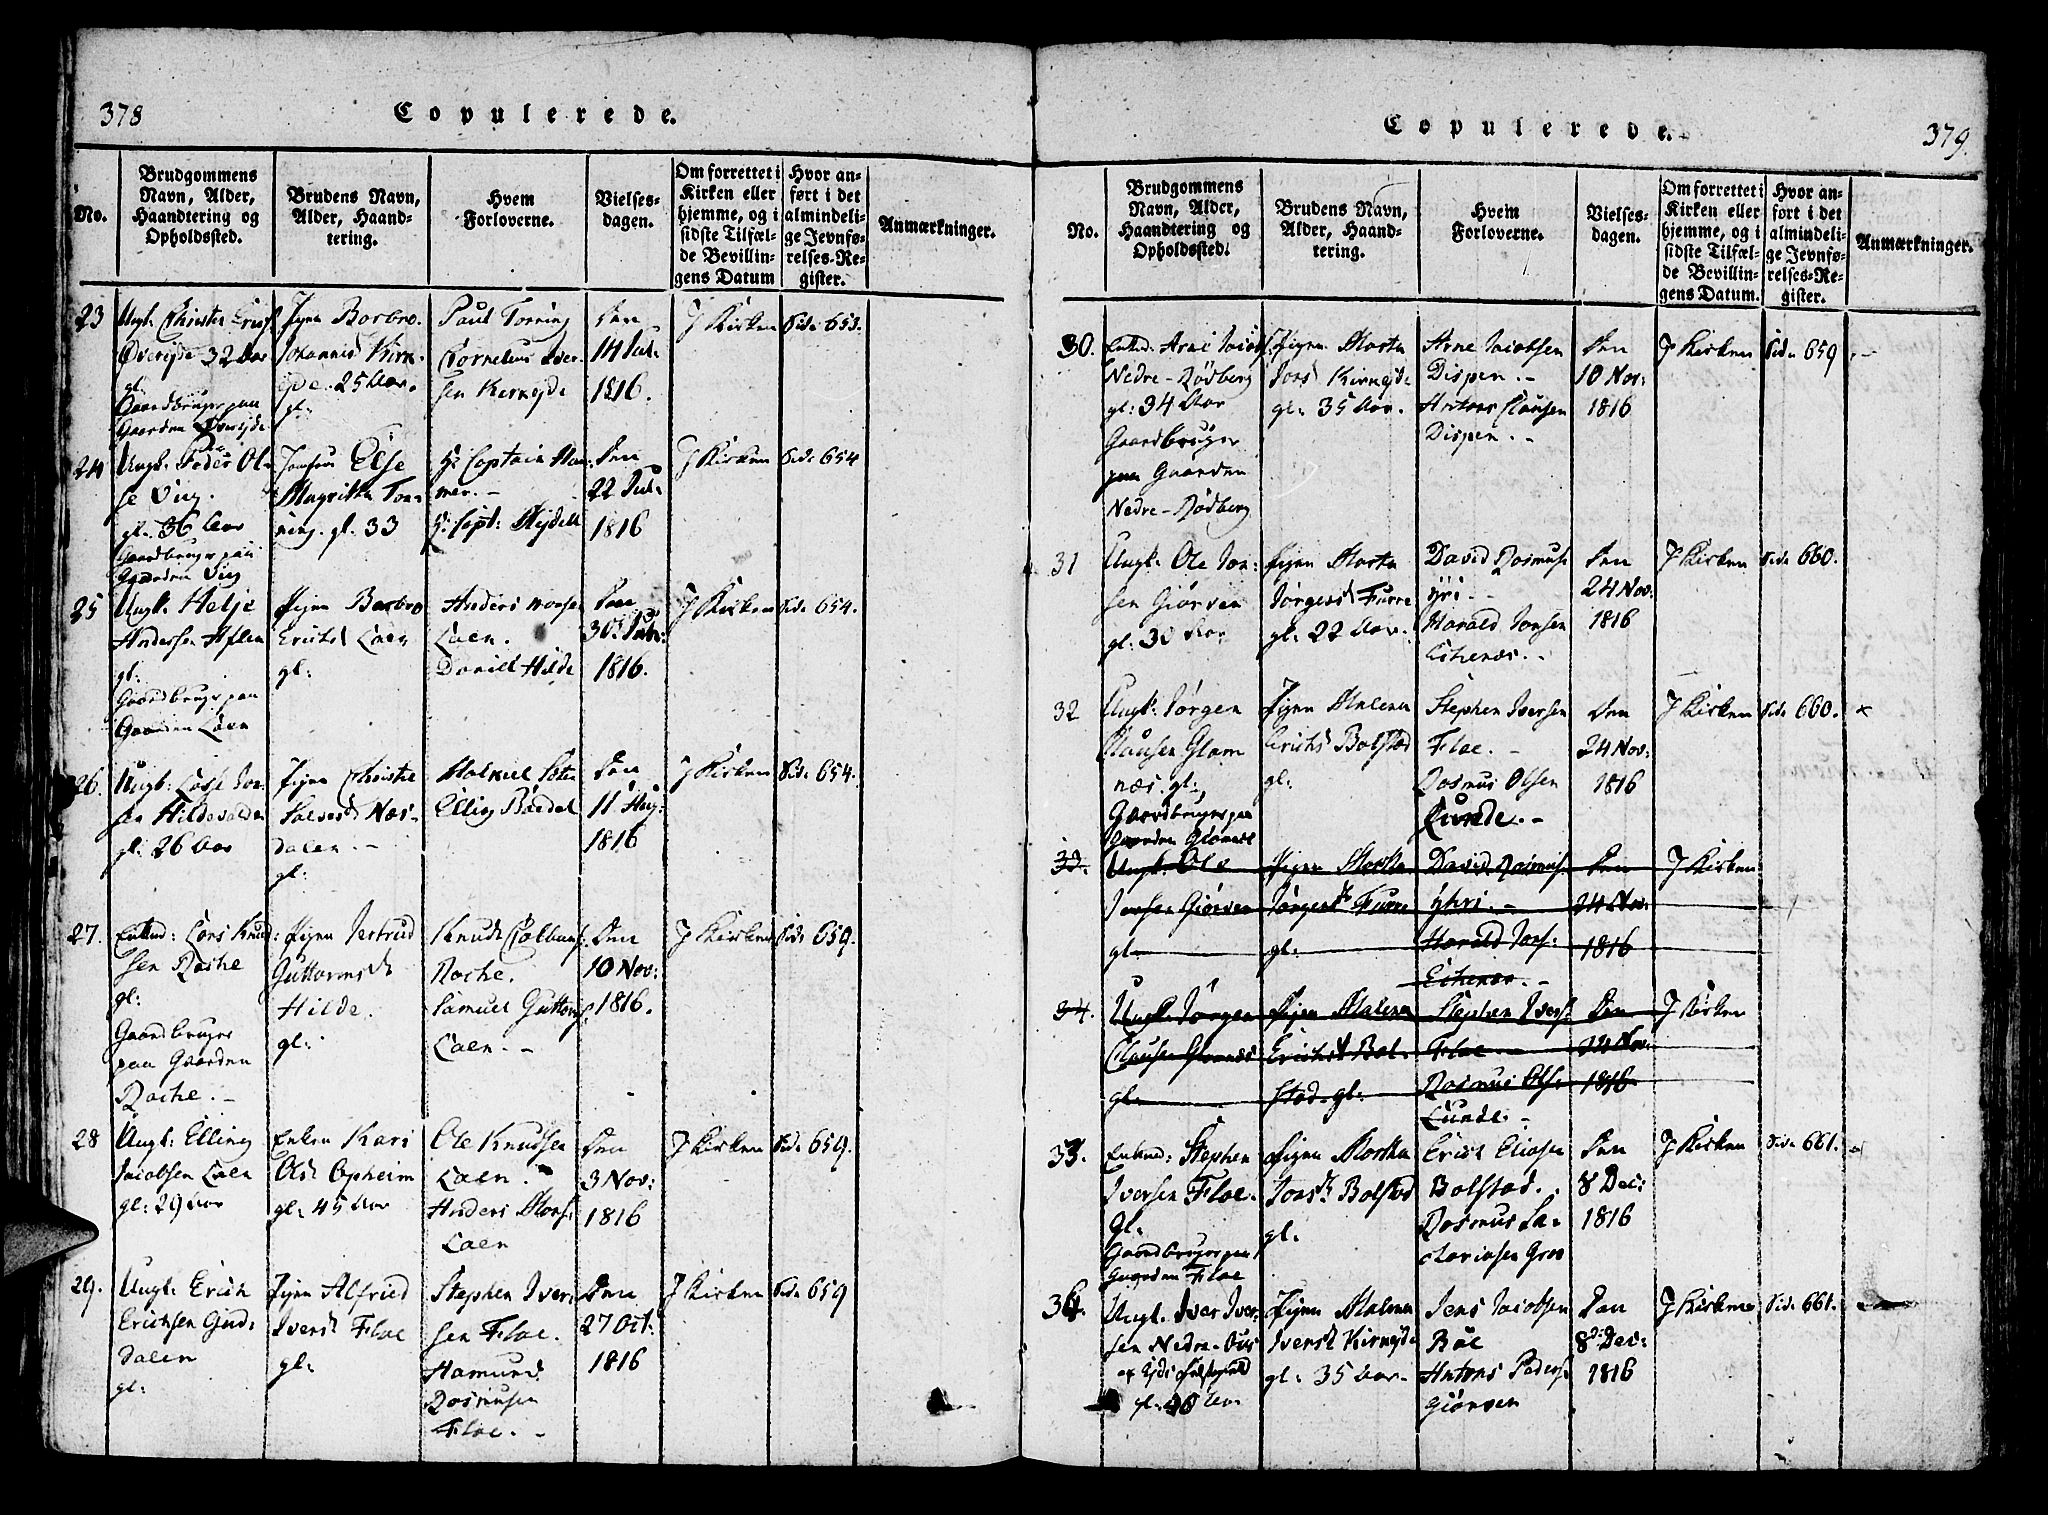 378
Copulerede.
No.
Brudgommens Navn, Alder, Haandtering og Opholdssted.
Brudens Navn, Alder, Haandtering.
Hvem Forloverne.
Vielsesdagen.
Om forrettet i Kirken eller hjemme, og i sidste Tilfælde Bevillingens Datum
Hvor anført i det almindelige Jevnførelses-Register.
Anmærkninger.
23
Ungk: Christen
Øvereyde 32 Aar
gl:
Gaardbruger paa
Gaarden Øvereyde
Pigen Barbro
Johannisd Kirn-
eyde. 25 Aar.
gl:
Paul Tonning
Cornelius Iver-
sen Kirneyde
Den
14 Jul:
1816.
J Kirken
Side 653.
24
Ungk: Peder Ol-
se Vug.
gl. 36 Aar
Gaardbruger paa
Gaarden Vug
Jomfru Else
Magritha Ton-
ning. gl. 33
Hr Captain Ham-
mer. -
Hr: Capt: Nydell
Den
22 Jul:
1816
J Kirken
Side 654
25
Ungk: Helje
Andersen Aflen
gl:
Gaardbruger paa
Gaarden Loen
Pigen Barbro
Erichsd Loen
gl:
Anders
Loen.
Daniel Hilde
Den
30 Jul:
1816.
J Kirken
Side 654.
26.
Ungk: Lasse Jon-
sen Hildevalden
gl: 26 Aar
Pigen Christie
Salvesd Næs-
dalen. -
gl:
Elling Bødal
Den
11 Aug:
1816
J Kirken
Side 654.
27.
Enkem: Lars Knud-
sen Rache
gl:
Gaardbruger
paa Gaarden
Rache. -
Pigen Jertrud
Guttormsd
Hilde.
gl:
Knud Colbens:
Rache.
Samuel Guttorms:
Loen. -
Den
10 Nov:
1816.
J Kirken
Side 659.
28
Ungk: Elling
Jacobsen Loen
gl: 29 Aar
Enken Kari
Olsd Opheim
gl: 45 Aar
Ole Knudsen
Loen.
Anders Mons:
Loen
Den
3 Nov:
1816
J Kirken
Side 659.
29.
Ungk: Erich
Erichsen Gud-
dalen
gl:
Pigen Alfried
Iversd Floe
gl:
Stephen Iver-
sen Floe.
Hamund
Rasmusen
Floe. -
Den
27 Oct:
1816
J Kirken
Side 659
Copulerede.
379.
No.
Brudgommens Navn, Alder, Haandtering og Opholdssted.
Brudens Navn, Alder, Haandtering.
Hvem Forloverne.
Vielsesdagen.
Om forrettet i Kirken eller hjemme, og i sidste Tilfælde Bevillingens Datum.
Hvor anført i det almindelige Jevnførelses-Register.
Anmærkninger.
30.
Enkem: Arne Jacobs:
Nedre-Rødberg
gl: 34 Aar
Gaardbruger
paa Gaarden
Nedre-Rødberg
Pigen Martha
Jonsd Kirneyde
gl: 35 Aar.
Arne Jacobsen
Dispen. -
Anton Clausen
Dispen. -
Den
10 Nov:
1816
J Kirken
Side 659
31
Ungk: Ole Jon-
sen Giørven
gl: 30 Aar
Pigen Martha
Jørgensd Furre
gl: 22 Aar.
David Rasmus:
Yri. -
Harald Jonsen
Eichenæs. -
Den
24 Nov:
1816
J Kirken
Side 660.
32
Ungk: Jørgen
Clausen Glom-
næs. gl:
Gaardbruger paa
Gaarden Glomnæs
Pigen Malena
Erichsd Bolstad
gl:
Stephen Iversen
Floe. -
Rasmus Olsen
Lunde. -
Den
24 Nov:
1816
J Kirken
Side 660.
33.
Ungk: Ole
Jonsen Giørven
gl:
Pigen Martha
Jørgensd Furre
gl:
David Rasmus:
Yhri. -
Harald Jons:
Eichenæs. -
Den
24 Nov:
1816
J Kirken
34.
Ungk: Jørgen
Clausen Glomnæs
gl:
Pigen Malena
Erichsd Bol-
stad. gl:
Stephen Ivers:
Floe. -
Rasmus Ols:
Lunde. -
Den
24 Nov:
1816
J Kirken
33.
Enkem: Stephen
Iversen Floe.
gl:
Gaardbruger paa
Gaarden Floe
Pigen Martha
Jonsd Bolstad
gl:
Erich Eliasen
Bolstad.
Rasmus Za-
chariasen Groo
Den
8 Dec:
1816
J Kirken
Side 661.
34.
Ungk. Iver Iver-
sen Nedre-AuS
gl. 40 Aar
Pigen Malena
Iversd Kirneyde
gl: 35 Aar
Jens Jacobsen
Bøe
Antons Peders:
Giørven
Den
8de Dec:
1816
J Kirken
Side 661.